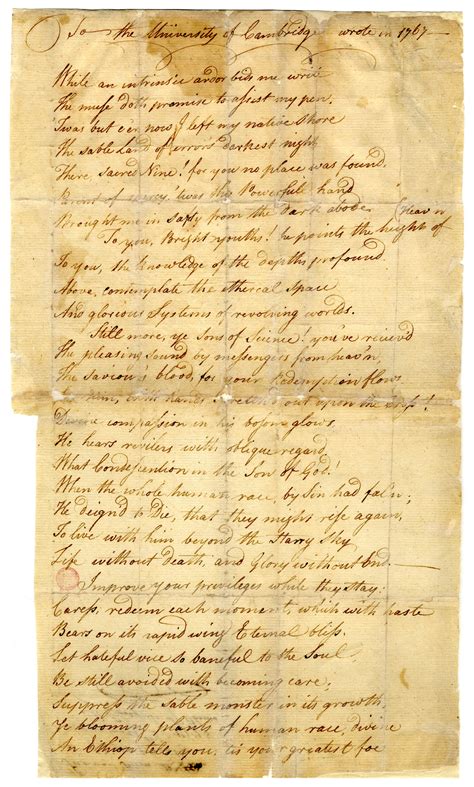 To the University of Cambridge wrote in 1767
While an intrinsic ardor bids me write
The muse doth promise to assist my pen.
Twas but e'en now I left my native shore
The sable Land of error's darkest night
There, sacred Nine! for you no place was found.
Parent of mercy! 'twas thy Powerfull hand
Brought me in safty from the dark abode.
Heav'n
To you, Bright youths! he points the height of
To you, the knowledge of the depths profound.
Above, contemplate the ethereal Space
And glorious Systems of revolving worlds.
Still more, ye Sons of Science! you've reciev'd
The pleasing sound by messengers from heav'n,
The Saviour's blood, for your Redemption flows.
him, with hands out upon the Cross!
Divine compassion in his bosom glows.
He hears revilers with oblique regard.
What Condescention in the Son of God!
When the whole human race, by Sin had fal'n;
He deign'd to Die, that they might rise again,
To live with him beyond the Starry Sky
Life without death, and Glory without End.
Improve your privileges while they Stay:
Caress, redeem each moment, which with haste
Bears on its rapid wing Eternal bliss.
Let hateful vice so baneful to the Soul,
Be still avoided with becoming care;
Suppress the sable monster in its growth,
Ye blooming plants of human race, divine
An Ethiop tells you, tis your greatest foe